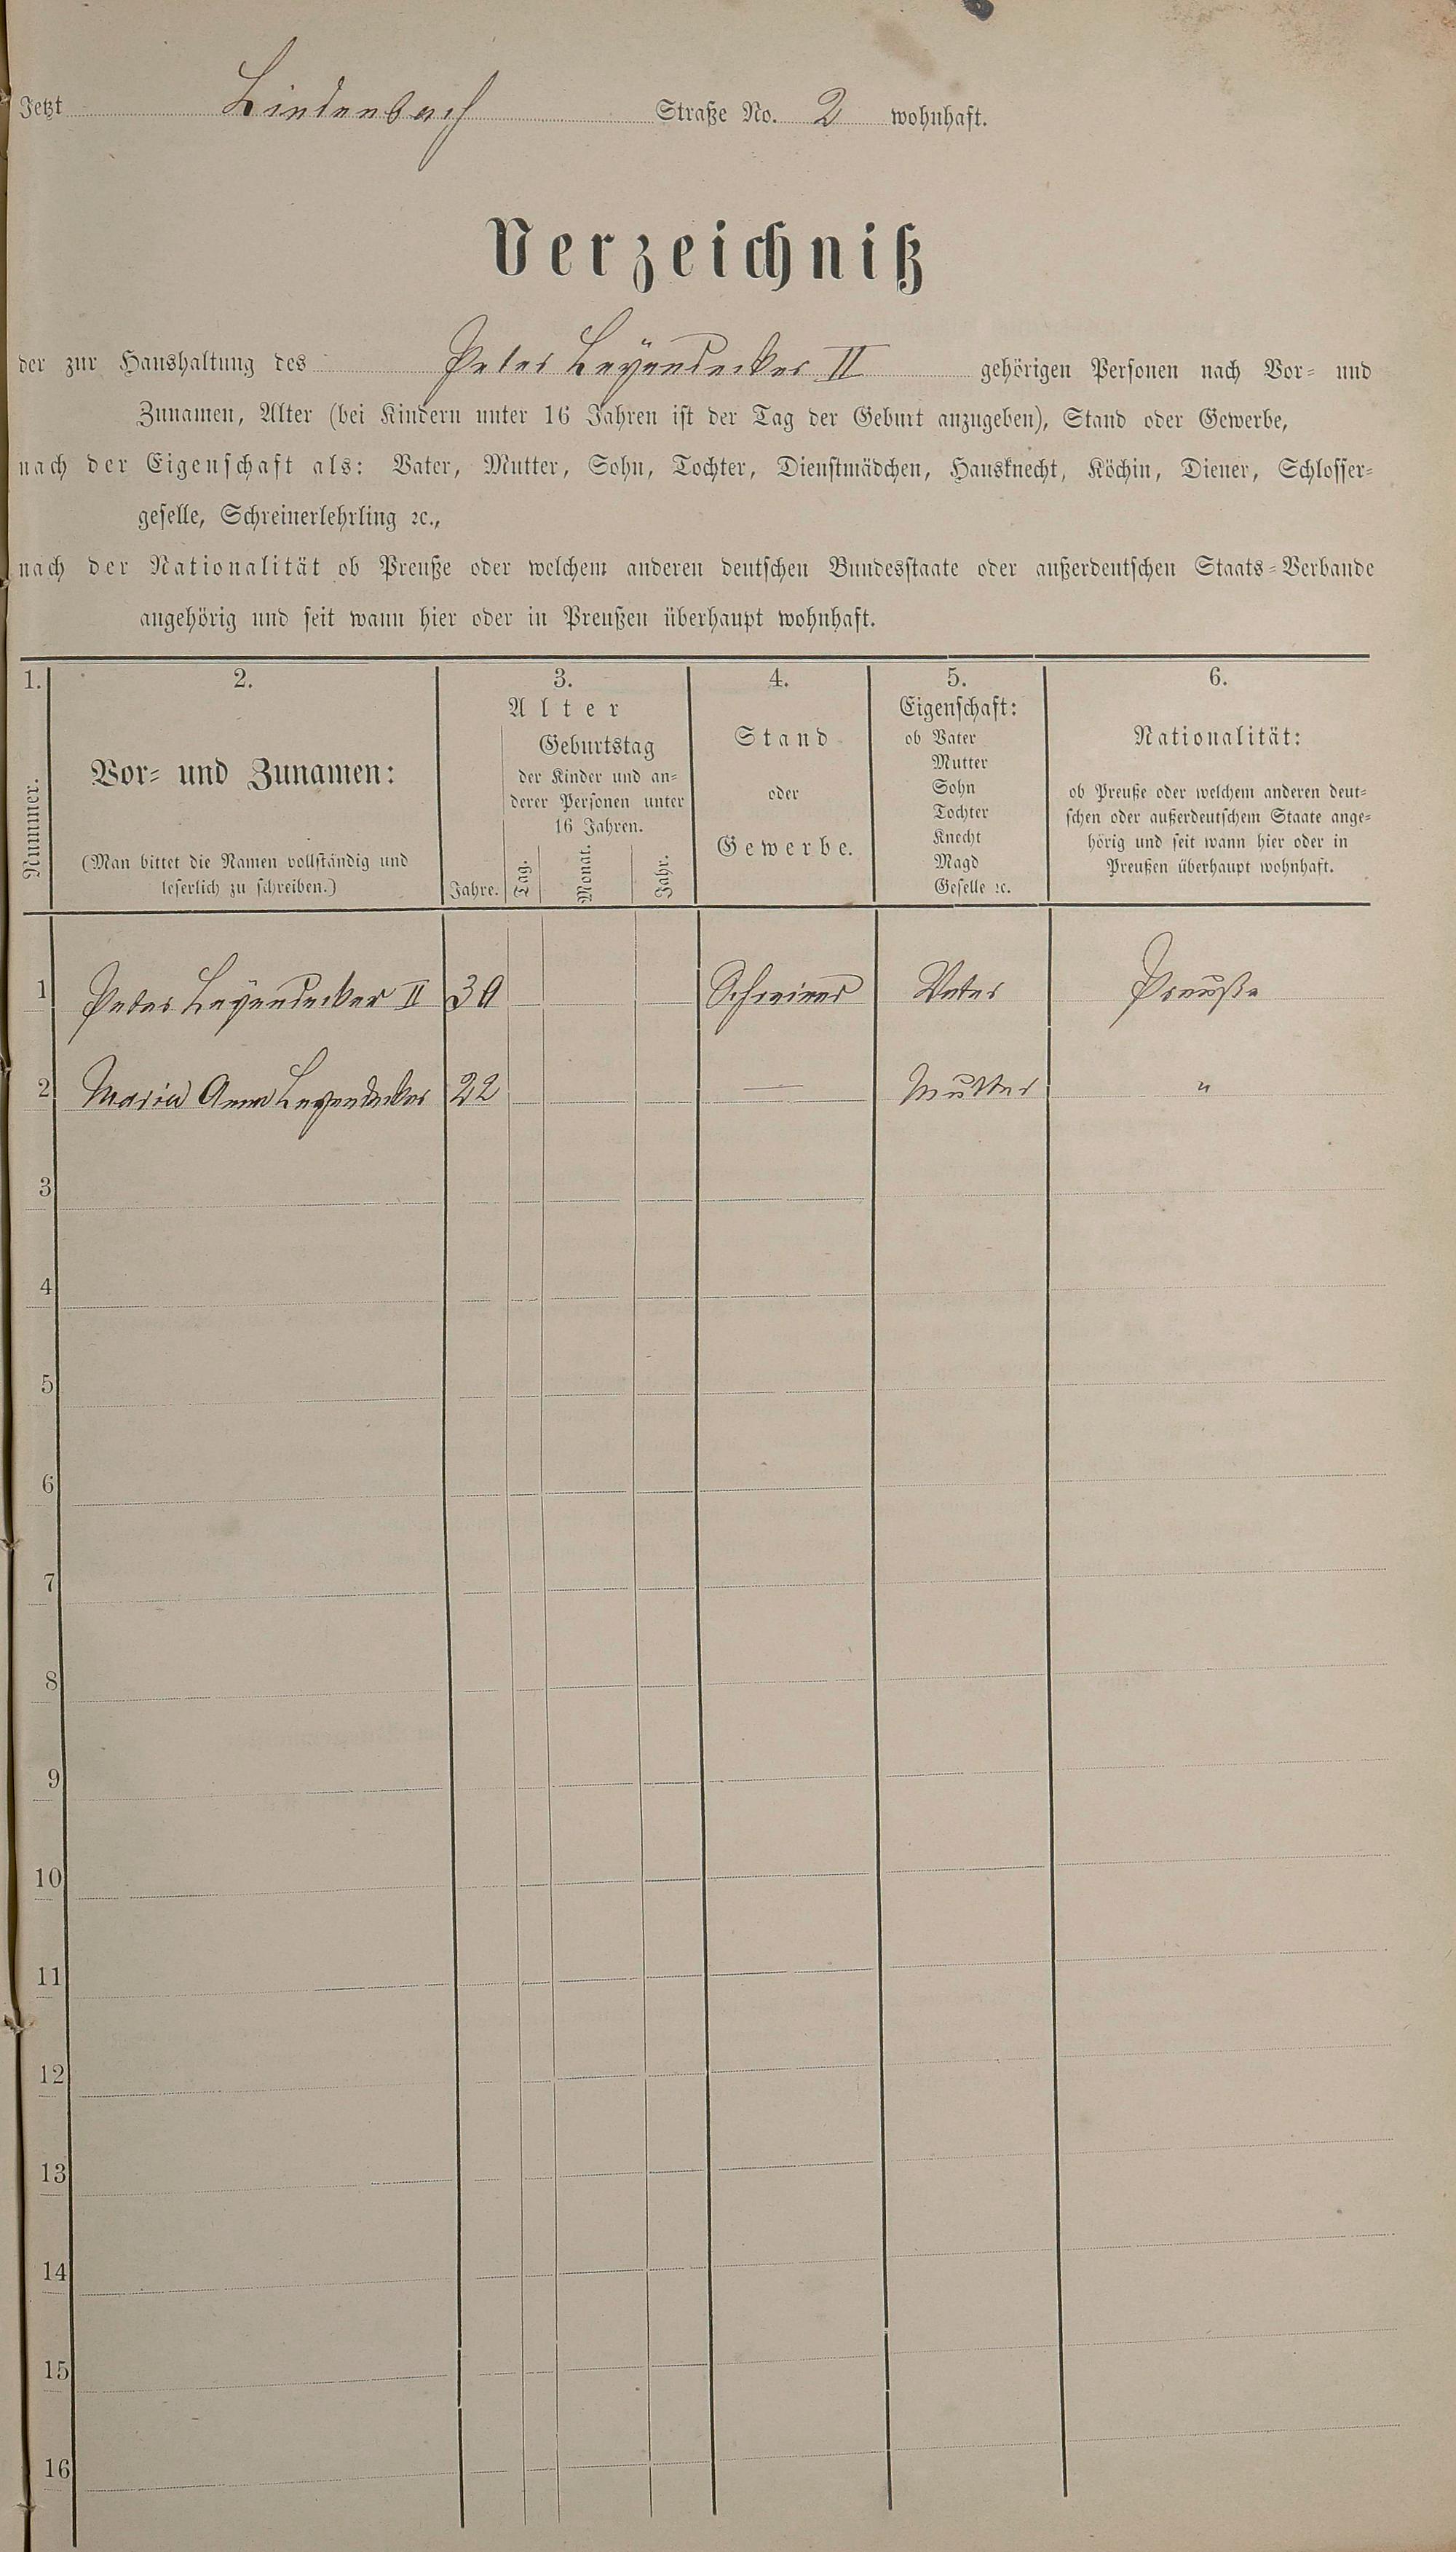 Jetzt Lindenbach Straße No. 2 wohnhaft.
Verzeichniß
der zur Haushaltung des Peter Leyendecker II gehörigen Personen nach Vor- und
Zunamen, Alter (bei Kindern unter 16 Jahren ist der Tag der Geburt anzugeben), Stand oder Gewerbe,
nach der Eigenschaft als: Vater, Mutter, Sohn, Tochter, Dienstmädchen, Hausknecht, Köchin, Diener, Schlosser-
geselle, Schreinerlehrling ꝛc.,
nach der Nationalität ob Preuße oder welchem anderen deutschen Bundesstaate oder außerdeutschen Staats-Verbande
angehörig und seit wann hier oder in Preußen überhaupt wohnhaft.
1. 2. 3. 4. 5. 6.
Nummer.
Vor- und Zunamen:
(Man bittet die Namen vollständig und
leserlich zu schreiben.)
Alter
Jahre.
Geburtstag
der Kinder und an-
derer Personen unter
16 Jahren.
Tag. Monat. Jahr.
Stand
oder
Gewerbe.
Eigenschaft:
ob Vater
Mutter
Sohn
Tochter
Knecht
Magd
Geselle ꝛc.
Nationalität:
ob Preuße oder welchem anderen deut-
schen oder außerdeutschem Staate ange-
hörig und seit wann hier oder in
Preußen überhaupt wohnhaft.
1 Peter Leyendecker II 30 Schreiner Vater Preuße
2 Maria Anna Leyendecker 22 — Mutter "
3
4
5
6
7
8
9
10
11
12
13
14
15
16